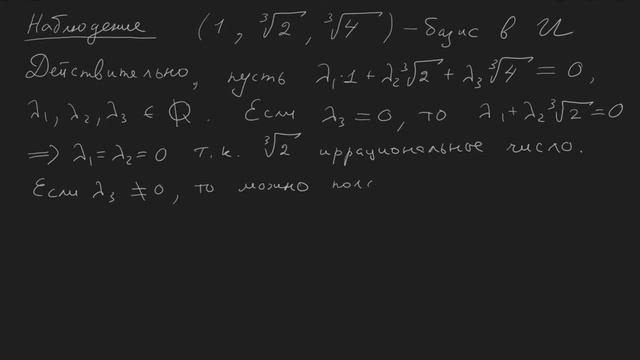 Наблюдение (1, ∛2, ∛4) – базис в U
Действительно, пусть λ₁·1 + λ₂∛2 + λ₃∛4 = 0,
λ₁, λ₂, λ₃ ∈ ℚ. Если λ₃ = 0, то λ₁ + λ₂∛2 = 0
⟹ λ₁ = λ₂ = 0 т.к. ∛2 иррациональное число.
Если λ₃ ≠ 0, то можно пол